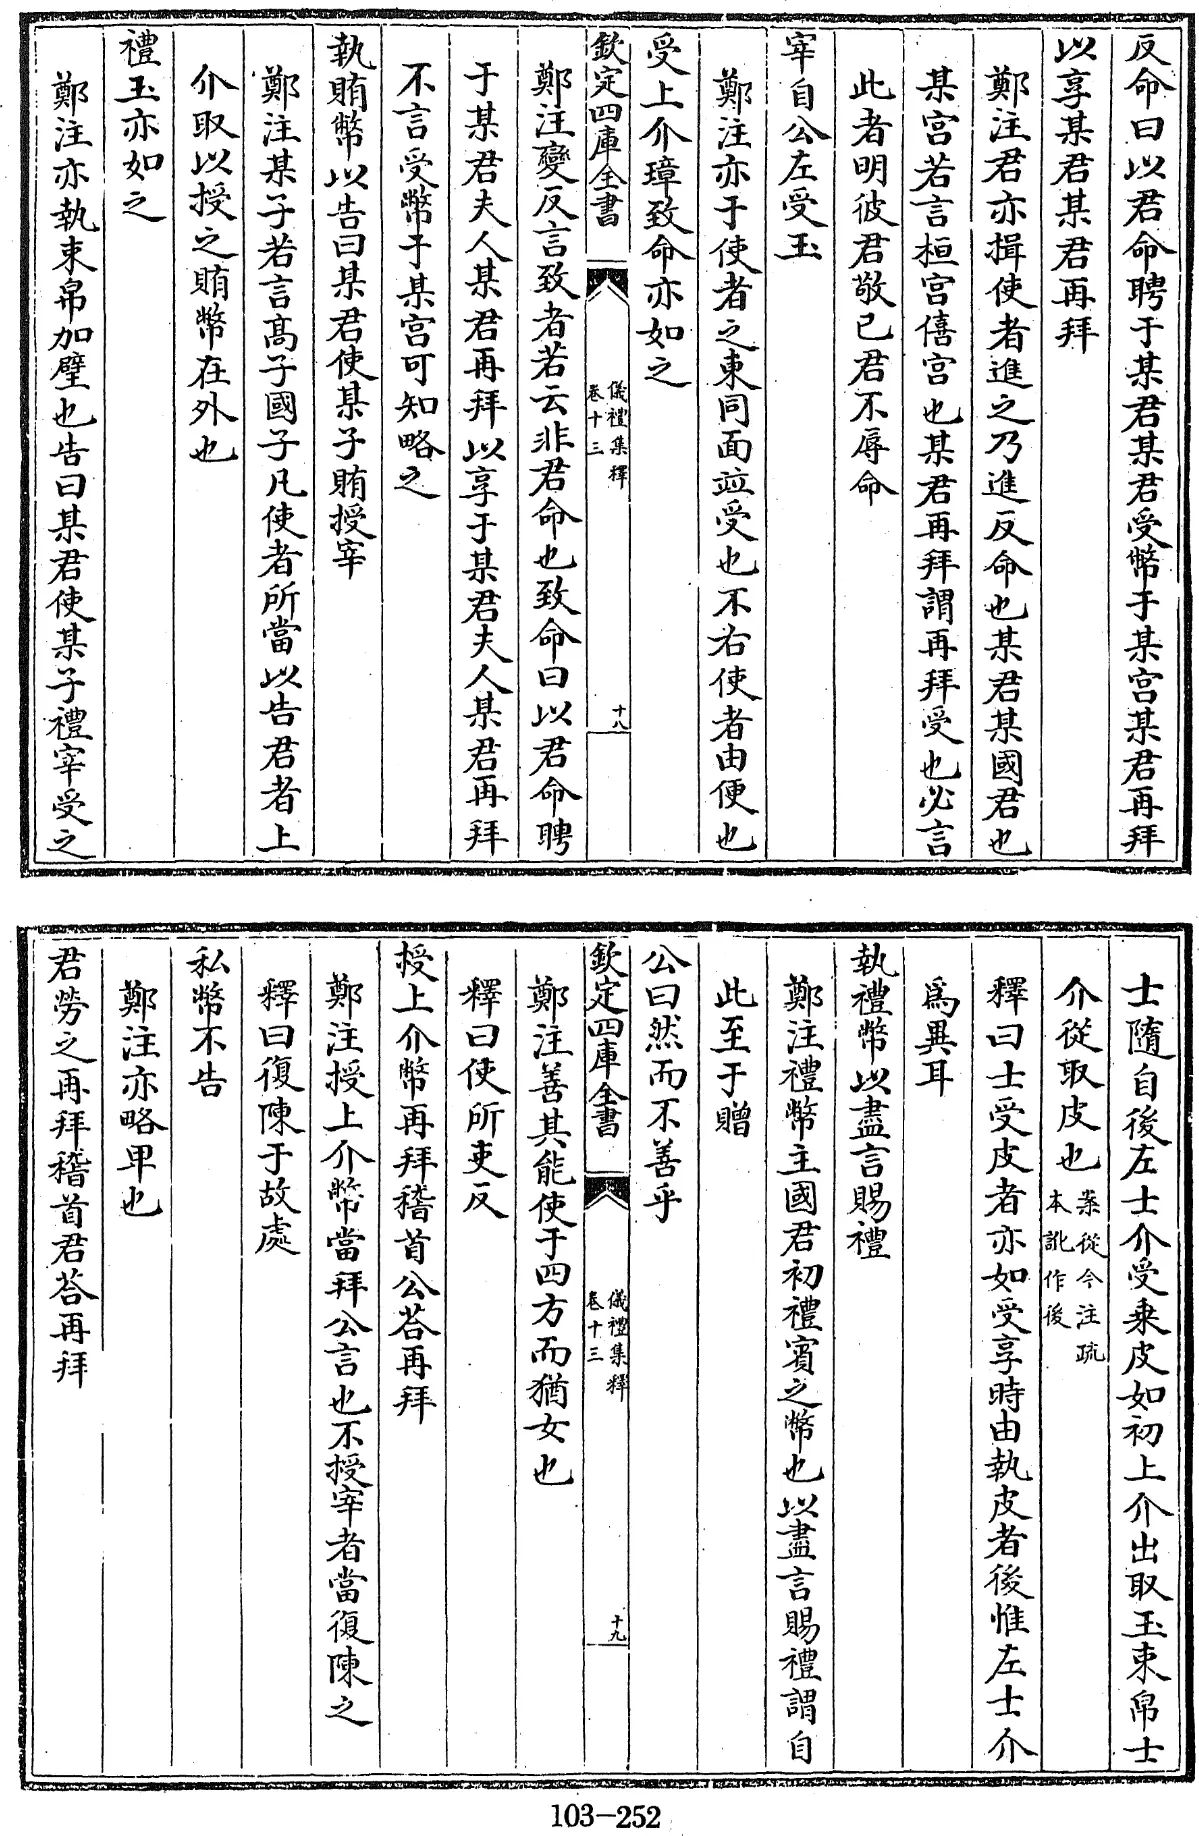 反命曰以君命聘于某君某君受幣于某宫某君再拜
以享某君某君再拜
鄭注君亦揖使者進之乃進反命也某君某國君也
某宫若言桓宫僖宫也某君再拜謂再拜受也必言
此者明彼君敬已君不辱命
宰自公左受玉
鄭注亦于使者之東同面竝受也不右使者由便也
受上介璋致命亦如之
欽定四庫全書
儀禮集釋
卷十三
十八
鄭注變反言致者若云非君命也致命曰以君命聘
于某君夫人某君再拜以享于某君夫人某君再拜
不言受幣于某宫可知略之
執賄幣以告曰某君使某子賄授宰
鄭注某子若言髙子國子凡使者所當以告君者上
介取以授之賄幣在外也
禮玉亦如之
鄭注亦執束帛加璧也告曰某君使某子禮宰受之
士隨自後左士介受乗皮如初上介出取玉束帛士
介從取皮也
案從今注疏
本訛作後
釋曰士受皮者亦如受享時由執皮者後惟左士介
爲異耳
執禮幣以盡言賜禮
鄭注禮幣主國君初禮賓之幣也以盡言賜禮謂自
此至于贈
公曰然而不善乎
欽定四庫全書
儀禮集釋
卷十三
十九
鄭注善其能使于四方而猶女也
釋曰使所吏反
授上介幣再拜稽首公荅再拜
鄭注授上介幣當拜公言也不授宰者當復陳之
釋曰復陳于故處
私幣不告
鄭注亦略卑也
君勞之再拜稽首君荅再拜
103-252